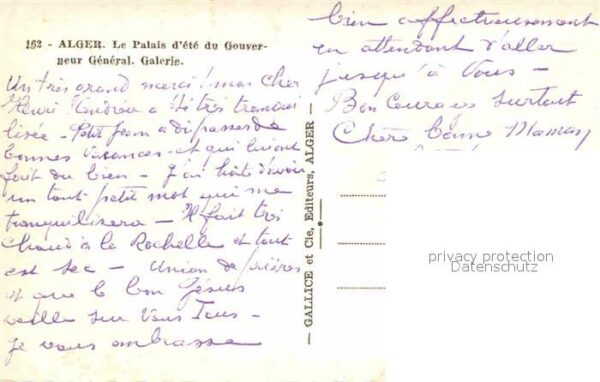 162 - ALGER. Le Palais d'été du Gouver-
neur Général. Galerie.
Un très grand merci! mon cher
Henri Andrée a été très tranquil
lisée - Petit Jean a dû passer de
bonnes vacances - et qui lui ont
fait du bien - J'ai hâte d'avoir
un tout petit mot qui me
tranquilisera - Il fait très
chaud à la Rochelle et tout
est sec - Union de prières
et que le bon Jésus
veille sur Vous Tous -
je vous embrasse
bien affectueusement
en attendant d'aller
jusqu'à Vous -
Bon Courage surtout
Chère Maman
GALLICE et Cie, Editeurs, ALGER
privacy protection
Datenschutz